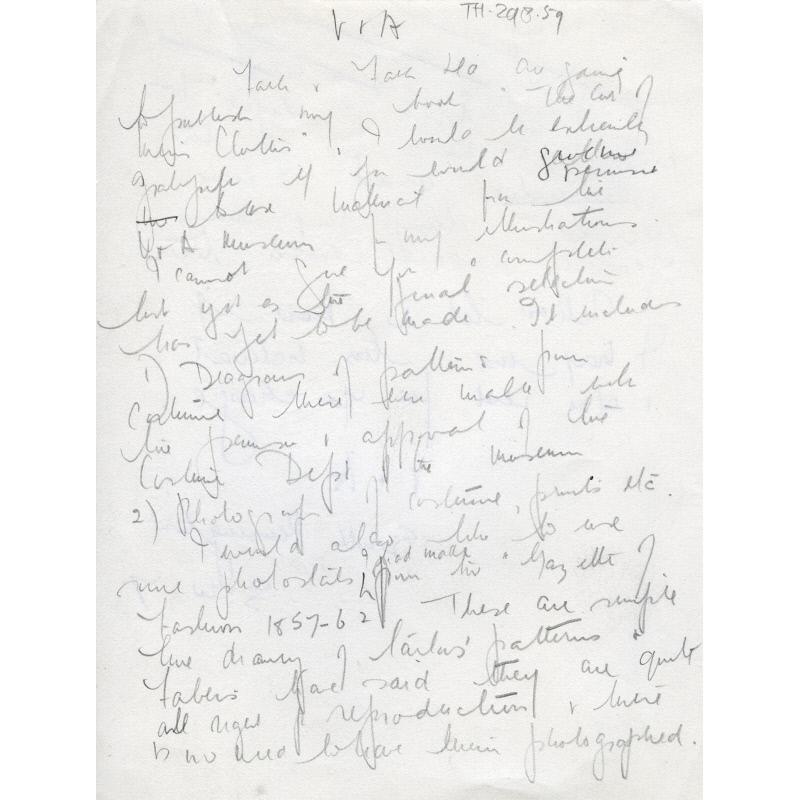 V & A TH. 2013.59
Faber & Faber Ltd are going
to publish my book "The Cut of
Men's Clothes". I would be extremely
grateful if you would
permission
to use material from the
V & A Museum for my illustrations.
I cannot give you a complete
list yet as the final selection
has yet to be made. It includes
1) Diagrams of patterns from
Costume there, made with
the permission & approval of the
Costume Dept of the museum
2) Photographs of costume, prints etc.
I would also like to use
some photostats I had made
from the "Gazette of
Fashion 1857-62". These are simple
line drawing of tailors' patterns &
Fabers have said they are quite
all right for reproduction & there
is no need to have them photographed.